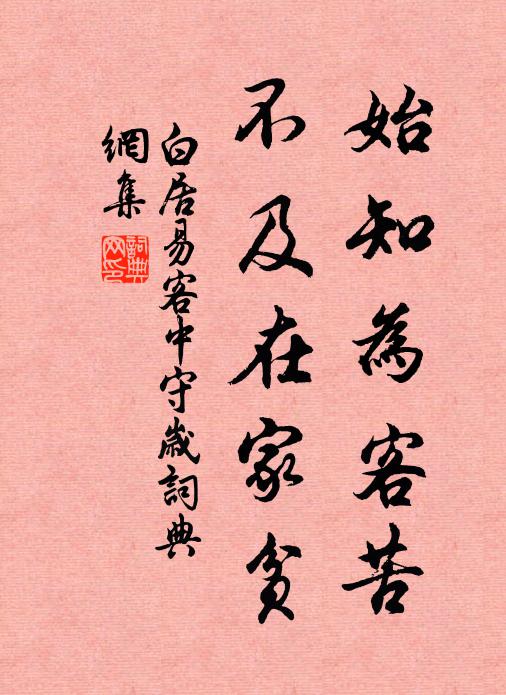 始知為客苦
不及在家貧
白居易客中守歲詞典
網集
詞典网印